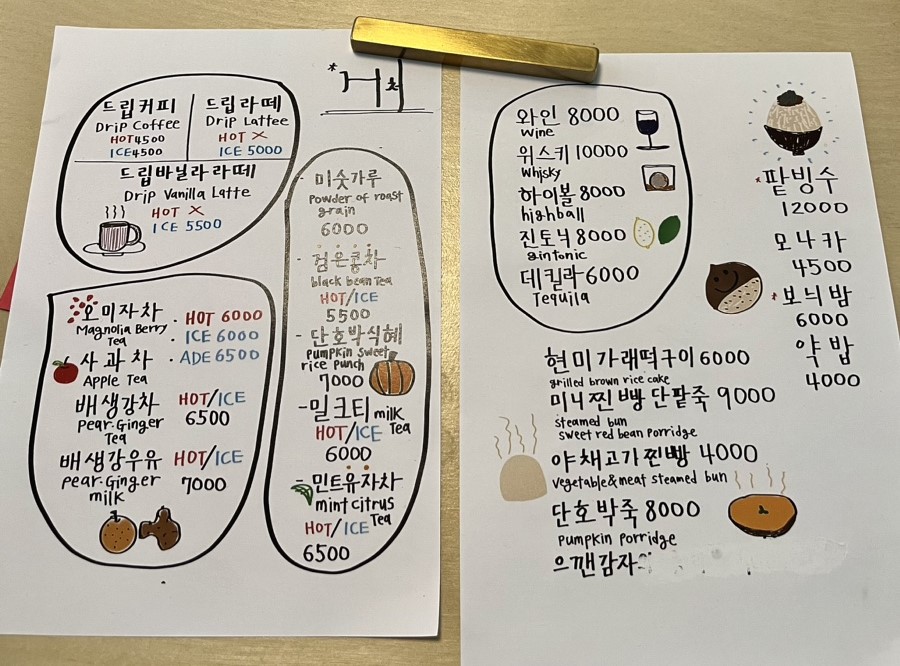 드립커피
Drip Coffee
HOT 4500
ICE 4500
드립라떼
Drip Lattee
HOT X
ICE 5000
드립바닐라라떼
Drip Vanilla Latte
HOT X
ICE 5500
오미자차
Magnolia Berry
Tea
· HOT 6000
· ICE 6000
· ADE 6500
사과차
Apple Tea
배생강차
pear.Ginger
Tea
HOT/ICE
6500
배생강우유
pear.Ginger
milk
HOT/ICE
7000
미숫가루
Powder of roast
grain
6000
검은콩차
black bean Tea
HOT/ICE
5500
- 단호박식혜
Pumpkin sweet
rice punch
7000
- 밀크티 milk
Tea
HOT/ICE
6000
민트유자차
mint citrus
Tea
HOT/ICE
6500
와인 8000
Wine
위스키 10000
Whisky
하이볼 8000
highball
진토닉 8000
gin tonic
데킬라 6000
Tequila
*팥빙수
12000
모나카
4500
*보늬밤
6000
약밥
4000
현미가래떡구이 6000
grilled brown rice cake
미니찐빵 단팥죽 9000
steamed bun
sweet red bean porridge
야채고기찐빵 4000
vegetable&meat steamed bun
단호박죽 8000
pumpkin porridge
으깬감자